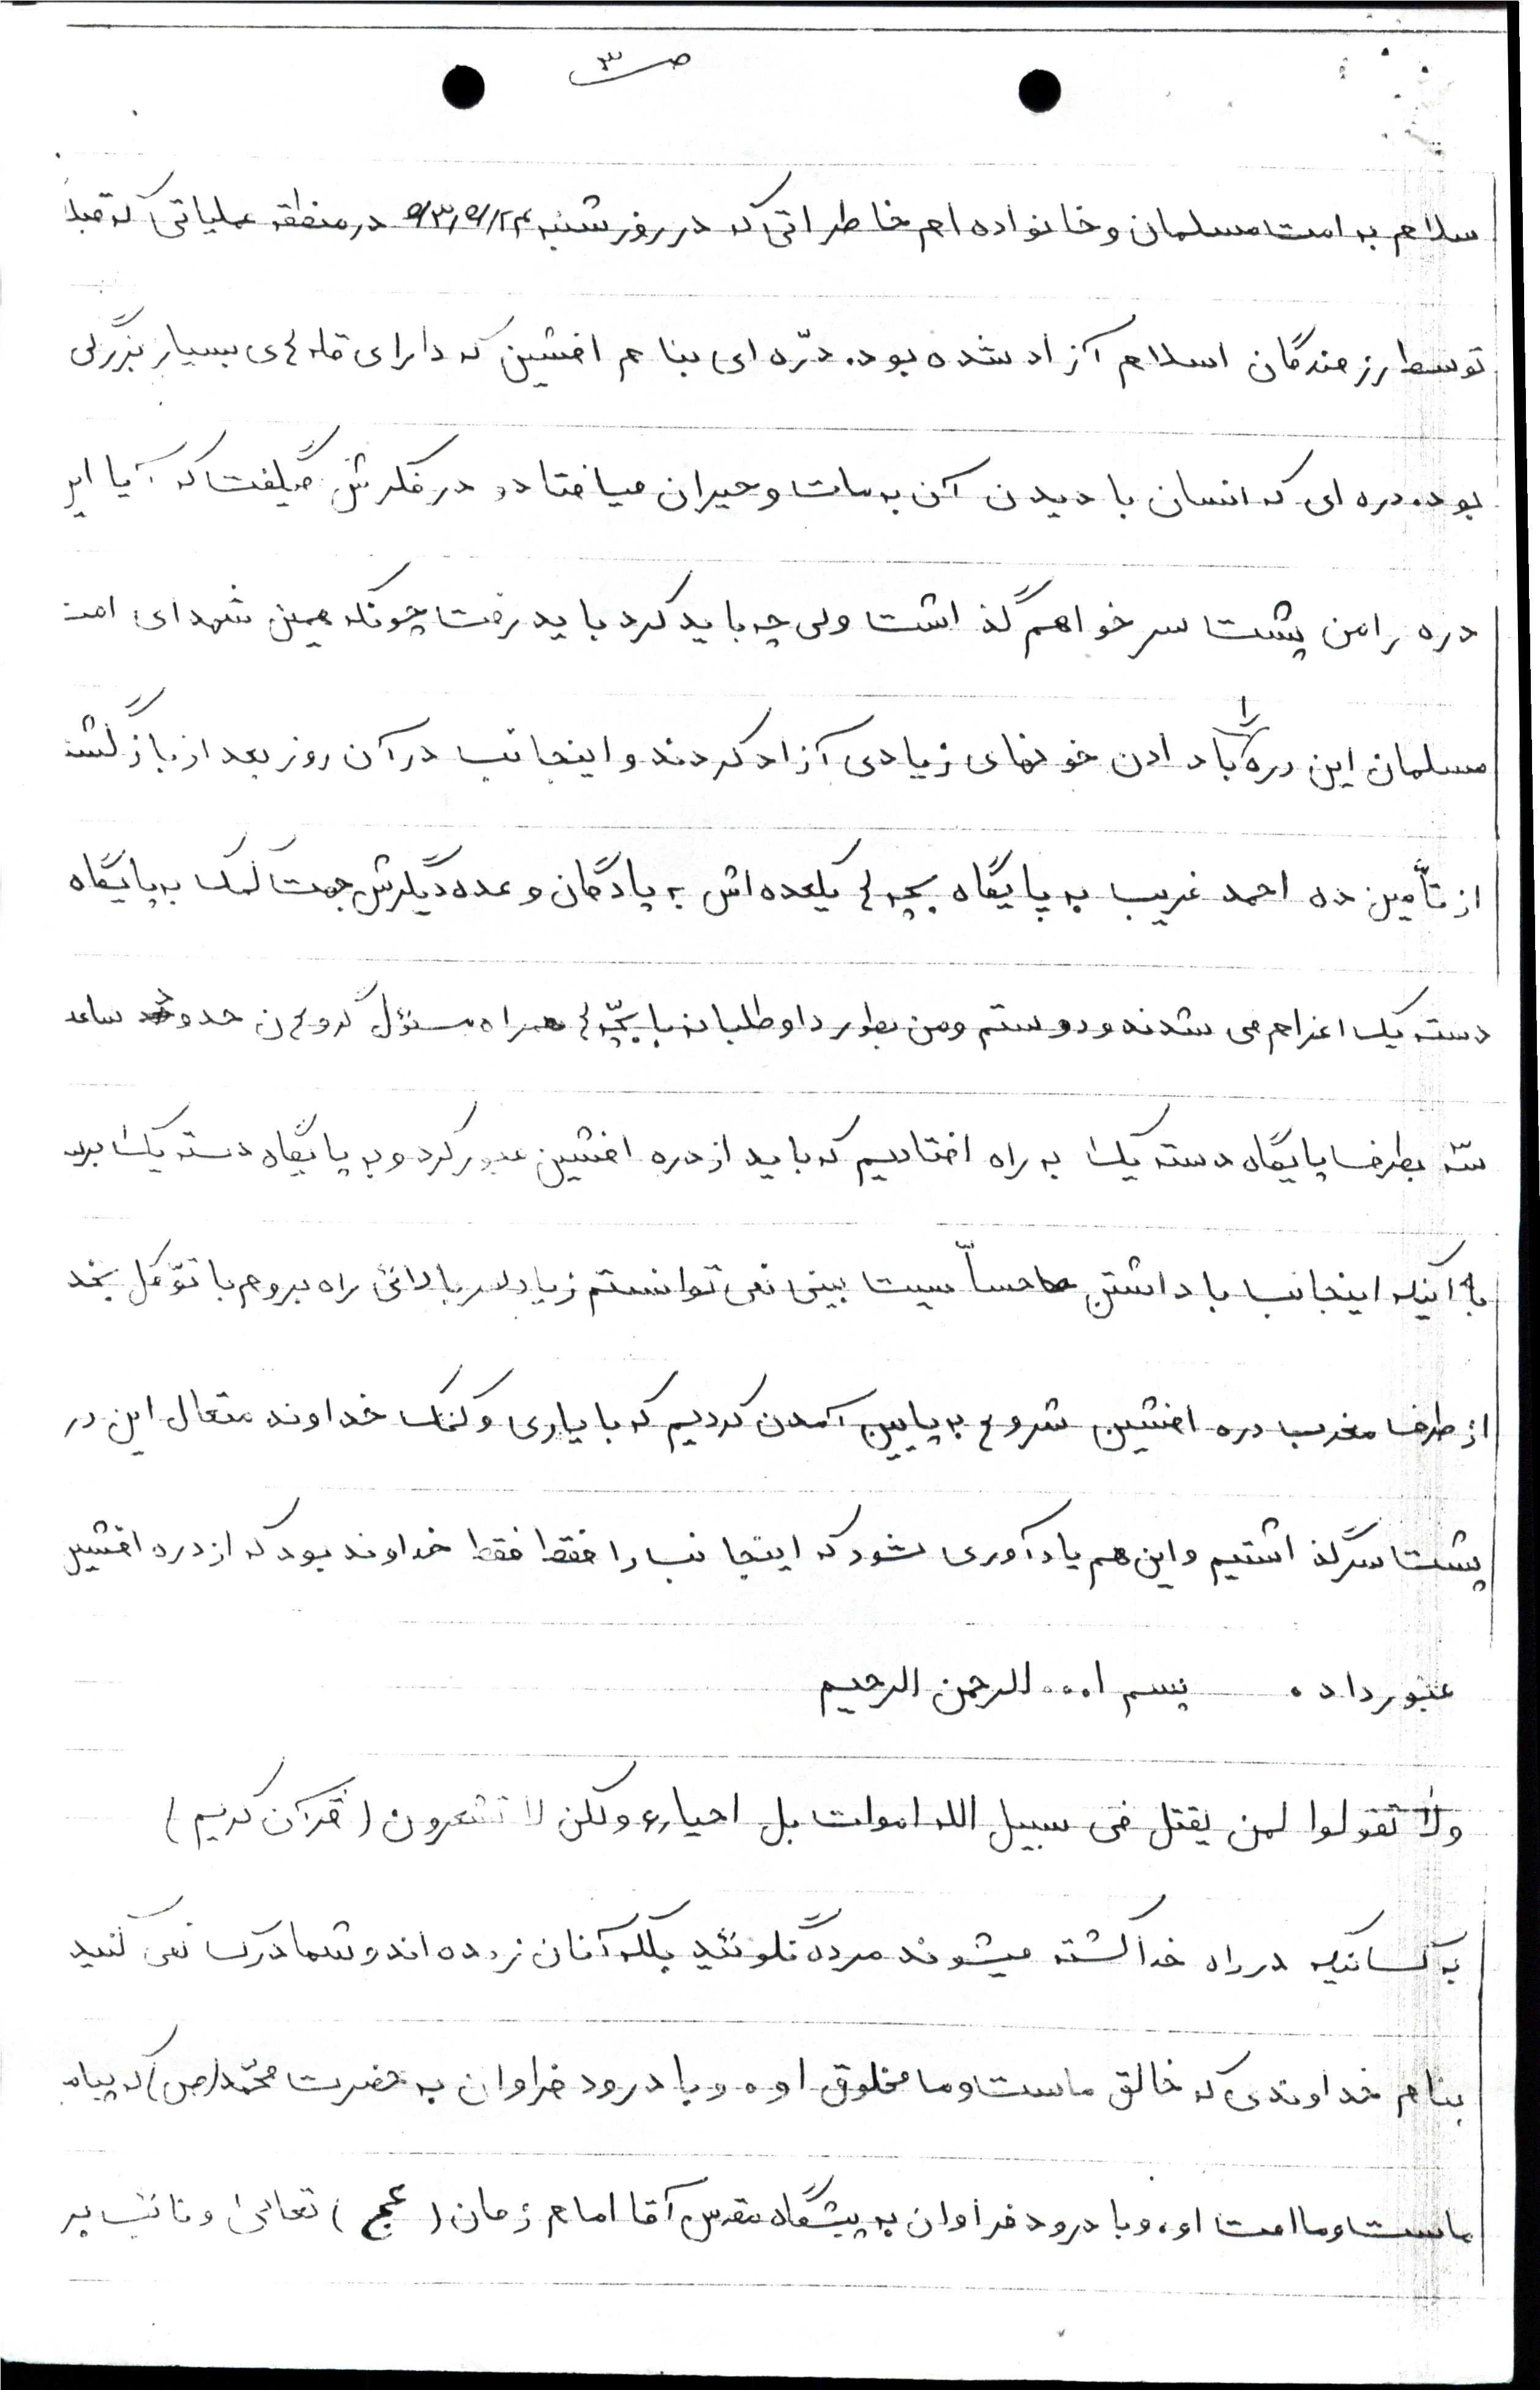 ص ۳
سلام به امت مسلمان و خانواده ام خاطراتی که در روز شنبه در منطقه عملیاتی که قبلاً
توسط رزمندگان اسلام آزاد شده بود. درّه ای بنام افشین که دارای قله های بسیار بزرگی
بود. دره ای که انسان با دیدن آن به مات و حیران میافتاد و در فکرش میگفت که آیا این
دره را من پشت سر خواهم گذاشت ولی چه باید کرد باید رفت چونکه همین شهدای امت
مسلمان این دره را با دادن خونهای زیادی آزاد کردند و اینجانب در آن روز بعد از بازگشت
از تأمین ده احمد غریب به پایگاه بچه ها یکعده اش به پادگان و عده دیگرش جهت کمک به پایگاه
دسته یک اعزام می شدند و دوستم و من بطور داوطلبانه با بچّه ها همراه مسئول گروهان حدود ساعت
سّه بطرف پایگاه دسته یک به راه افتادیم که باید از دره افشین عبور کرد و به پایگاه دسته یک
با اینکه اینجانب با داشتن حساّسیت بینی نمی توانستم زیاد سربالائی راه بروم با توّکل بخدا
از طرف مغرب دره افشین شروع به پایین آمدن کردیم که با یاری و کمک خداوند متعال این در
پشت سر گذاشتیم و این هم یادآوری شود که اینجانب را فقط فقط خداوند بود که از دره افشین
عبور داد. بسم ا... الرحمن الرحیم
ولا تقولوا لمن یقتل فی سبیل الله اموات بل احیاء ولکن لا تشعرون (قرآن کریم)
به کسانیکه در راه خدا کشته میشوند مرده نگوئید بلکه آنان زنده اند و شما درک نمی کنید
بنام خداوندی که خالق ماست و ما مخلوق او. و با درود فراوان به حضرت محمّد (ص) که پیام
ماست و ما امت او. و با درود فراوان به پیشگاه مقدس آقا امام زمان (عج) تعالی و نائب بر